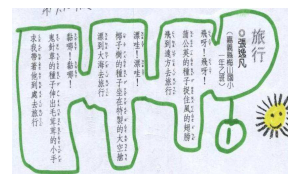 旅行
◎張逸凡
（嘉義縣梅山國小
一年乙班）
飛呀！飛呀！
蒲公英的種子捉住風的翅膀
飛到遠方去旅行
漂哇！漂哇！
椰子樹的種子坐在特製的大空艙
漂到大海去旅行
黏嘟！黏嘟！
鬼針草的種子伸出毛茸茸的小手
求我帶著他到處去旅行
1